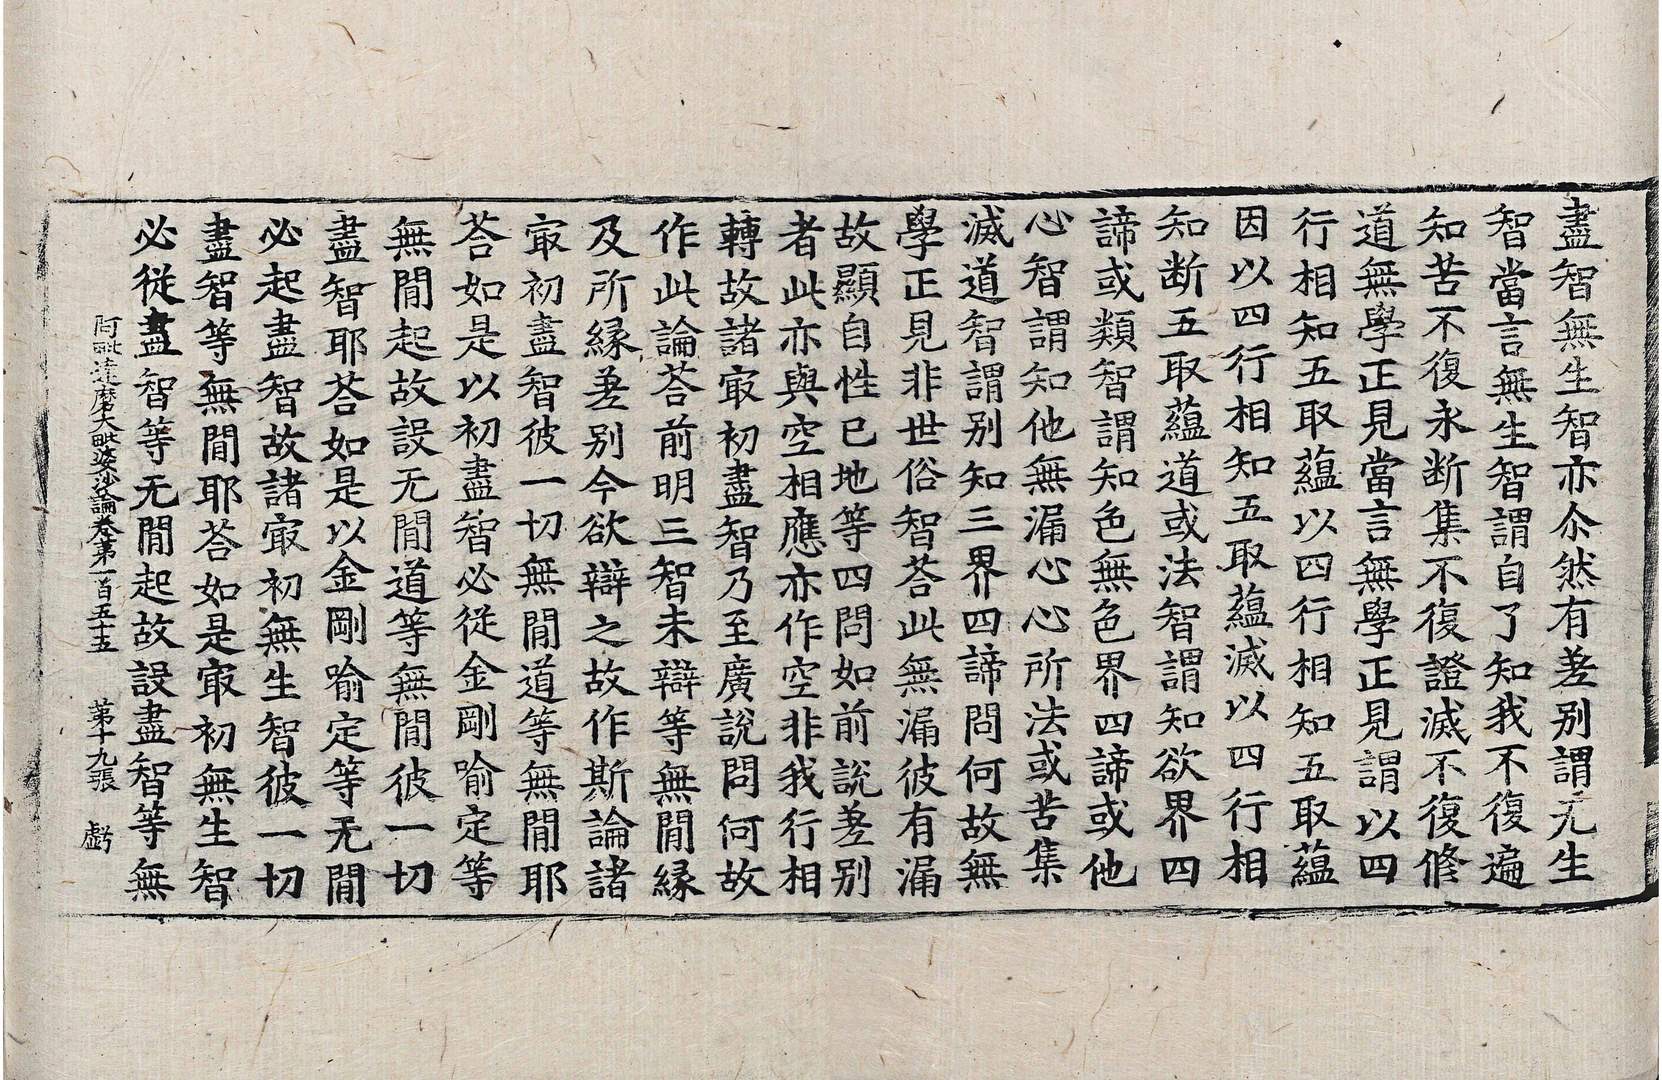 盡智無生智亦尒然有差別謂无生
智當言無生智謂自了知我不復遍
知苦不復永断集不復證滅不復修
道無學正見當言無學正見謂以四
行相知五取蘊以四行相知五取蘊
因以四行相知五取蘊滅以四行相
知断五取蘊道或法智謂知欲界四
諦或類智謂知色無色界四諦或他
心智謂知他無漏心心所法或苦集
滅道智謂別知三界四諦問何故無
學正見非世俗智荅此無漏彼有漏
故顯自性已地等四問如前說差別
者此亦與空相應亦作空非我行相
轉故諸㝡初盡智乃至廣說問何故
作此論荅前明三智未辯等無間縁
及所縁差別今欲辯之故作斯論諸
㝡初盡智彼一切無間道等無間耶
荅如是以初盡智必從金剛喻定等
無間起故設无間道等無間彼一切
盡智耶荅如是以金剛喻定等无間
必起盡智故諸㝡初無生智彼一切
盡智等無間耶荅如是㝡初無生智
必從盡智等无間起故設盡智等無
阿毗達磨大毗婆沙論卷第一百五 第十九張 虧